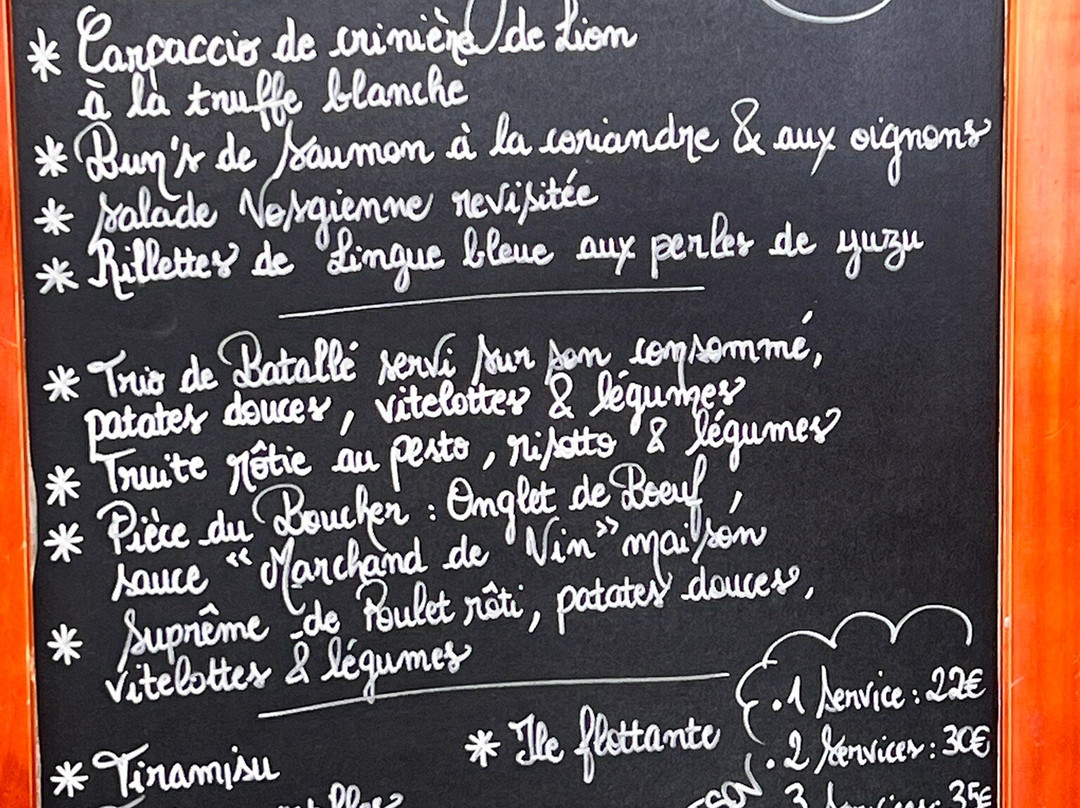 * Carpaccio de crinière de Lion
à la truffe blanche
* Bun's de Saumon à la coriandre & aux oignons
* Salade Vosgienne revisitée
* Rillettes de Lingue bleue aux perles de yuzu
* Trio de Batallé servi sur son consommé,
patates douces, vitelottes & légumes
* Truite rôtie au pesto, risotto & légumes
* Pièce du Boucher : Onglet de Boeuf,
sauce "Marchand de Vin" maison
* Suprême de Poulet rôti, patates douces,
vitelottes & légumes
* Tiramisu
* Ile flottante
. 1 Service : 22€
. 2 Services : 30€
3 Services : 35€